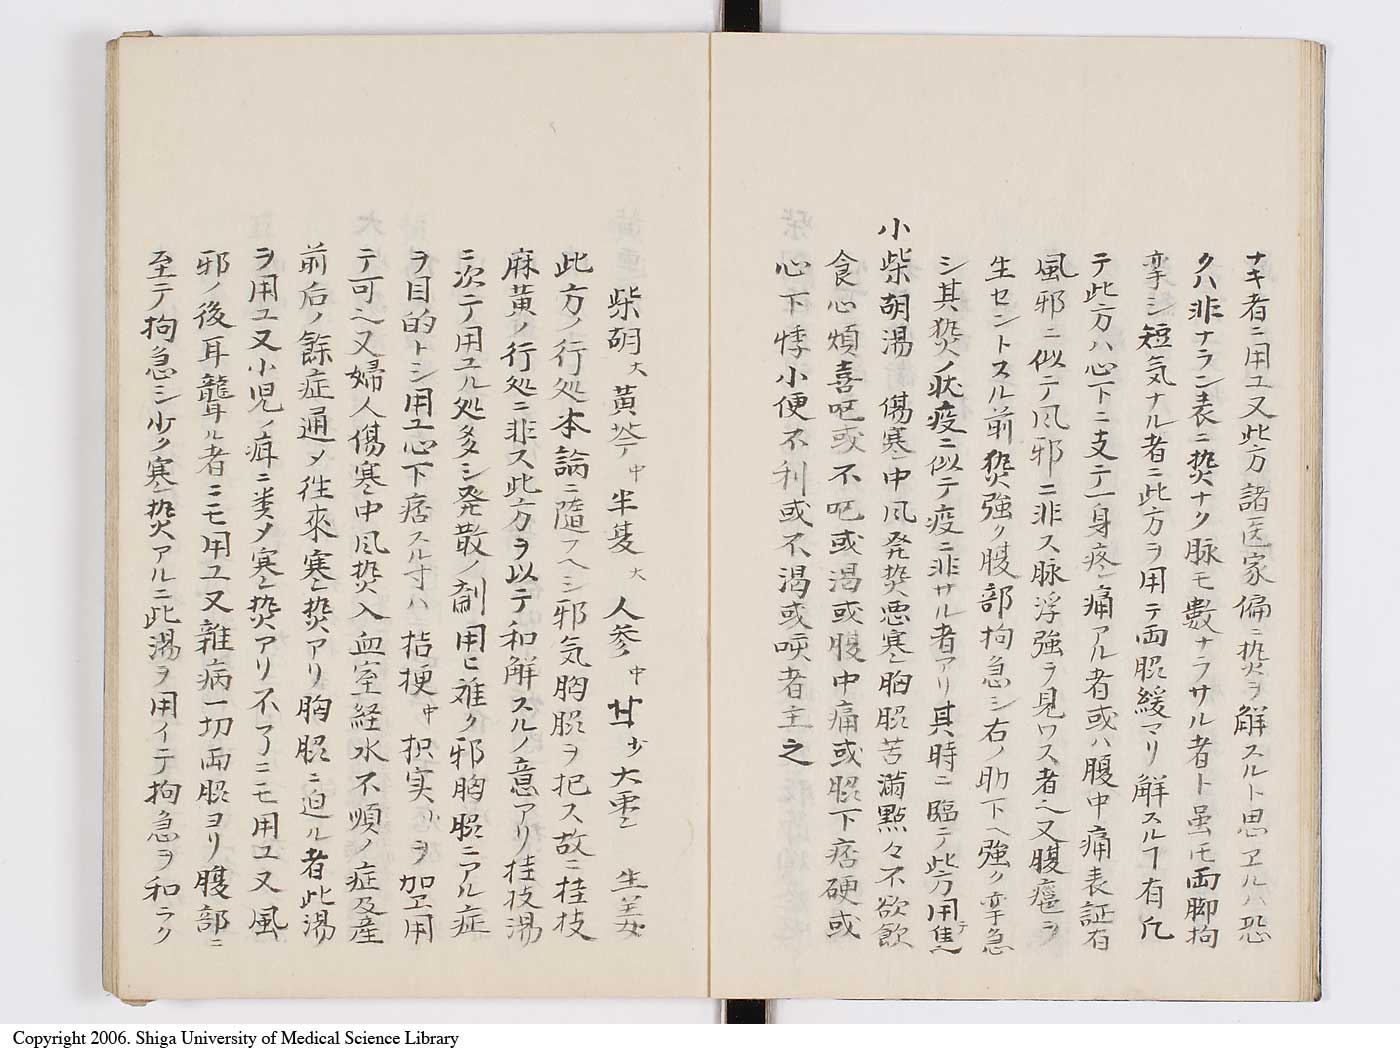 ナキ者ニ用ユ又此方諸医家偏ニ㷔ヲ解スルト思ヱルハ恐
クハ非ナラン表ニ㷔ナク脉モ數ナラサル者ト虽モ両脚拘
挛シ短気ナル者ニ此方ヲ用テ両䏮緩マリ解スルヿ有凡
テ此方ハ心下ニ支テ一身疼痛アル者或ハ腹中痛表証有
風邪ニ似テ风邪ニ非ス脉浮強ラ見ワス者又腹癰ヲ
生セントスル前㷔強ク腹部拘急シ右ノ助下ヘ強ク挛急
シ其㷔ノ状疫ニ似テ疫ニ非サル者アリ其時ニ臨テ此方用テ
小柴胡湯 傷寒中风発㷔悪寒胸䏮苦滿點々不欲飲
食心煩喜呕或不呕或渇或腹中痛或䏮下痞硬或
心下悸小便不利或不渇或咳者主之
柴胡大 黄芩中 半夏大 人参中 甘少 大棗 生姜
此方ノ行処本論ニ隨フヘシ邪気胸䏮ヲ犯ス故ニ桂枝
麻黄ノ行処ニ非ス此方ヲ以テ和解スルノ意アリ桂枝湯
ニ次テ用ユル処多シ発散ノ剤用ヒ難ク邪胸䏮ニアル症
ヲ目的トシ用ユ心下痞スル寸ハ 桔梗中 枳実小 ヲ加ヱ用
テ可也又婦人傷寒中风㷔入血室経水不順ノ症及産
前后ノ餘症通メ徃來寒㷔アリ胸䏮ニ迫ル者此湯
ヲ用ユ又小児ノ疳ニ类メ寒㷔アリ不了ニモ用ユ又風
邪ノ後耳聾ル者ニモ用ユ又雜病一切両䏮ヨリ腹部ニ
至テ拘急シ少ク寒㷔アルニ此湯ヲ用イテ拘急ヲ和ラク
Copyright 2006. Shiga University of Medical Science Library